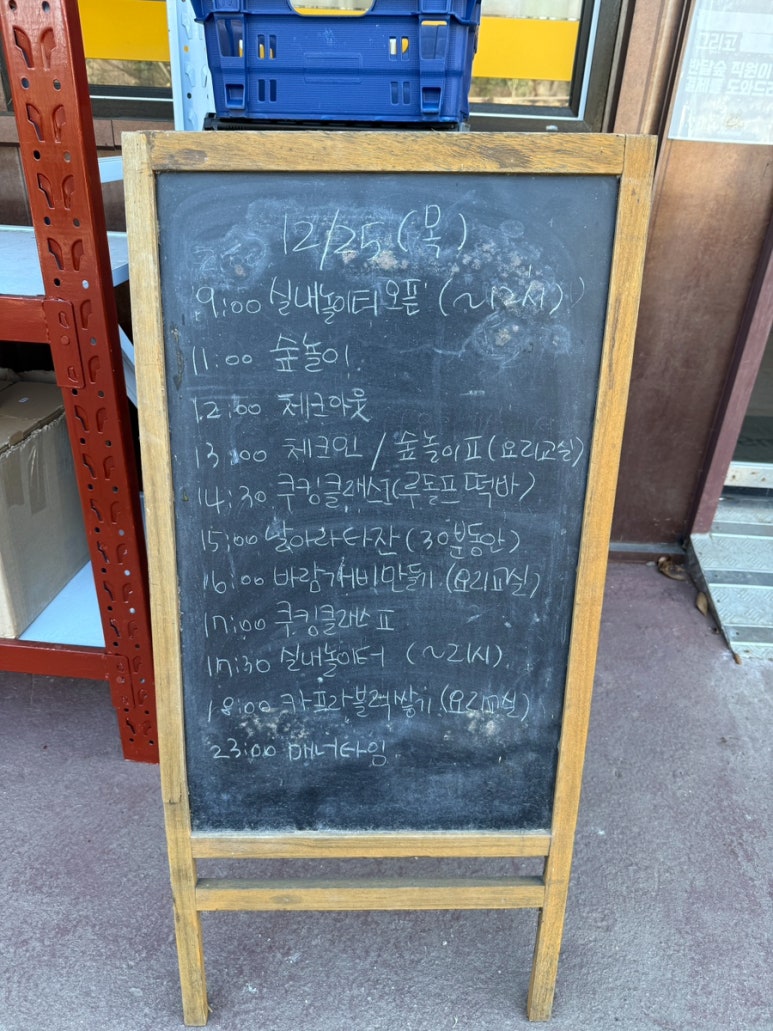 그리고
반달숲 직원이
12/25 (목)
9:00 실내놀이터 오픈 (~12시)
11:00 숲놀이
12:00 체크아웃
13:00 체크인 / 숲놀이 교(요리교실)
14:30 쿠킹클래스I(루돌프떡바)
15:00 날아라타잔 (30분동안)
16:00 바람개비만들기 (요리교실)
17:00 쿠킹클래스 II
17:30 실내놀이터 (~21시)
18:00 카프라블럭쌓기 (요리교실)
23:00 매너타임